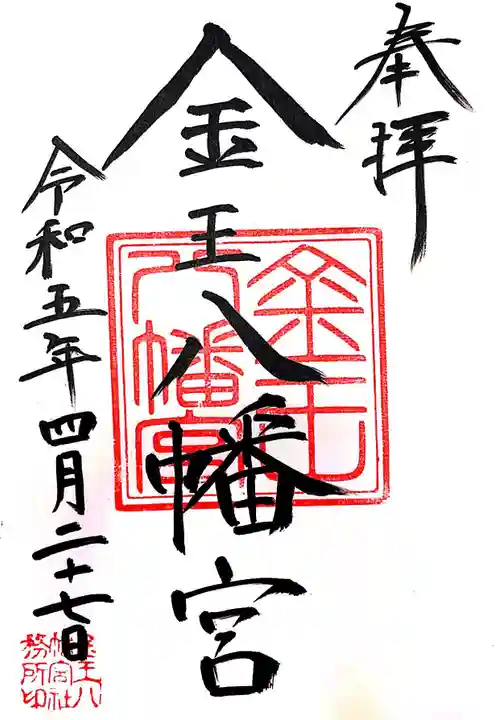 奉拝
金王八幡宮
金王八幡宮
令和五年四月二十七日
金王八
幡宮社
務所印